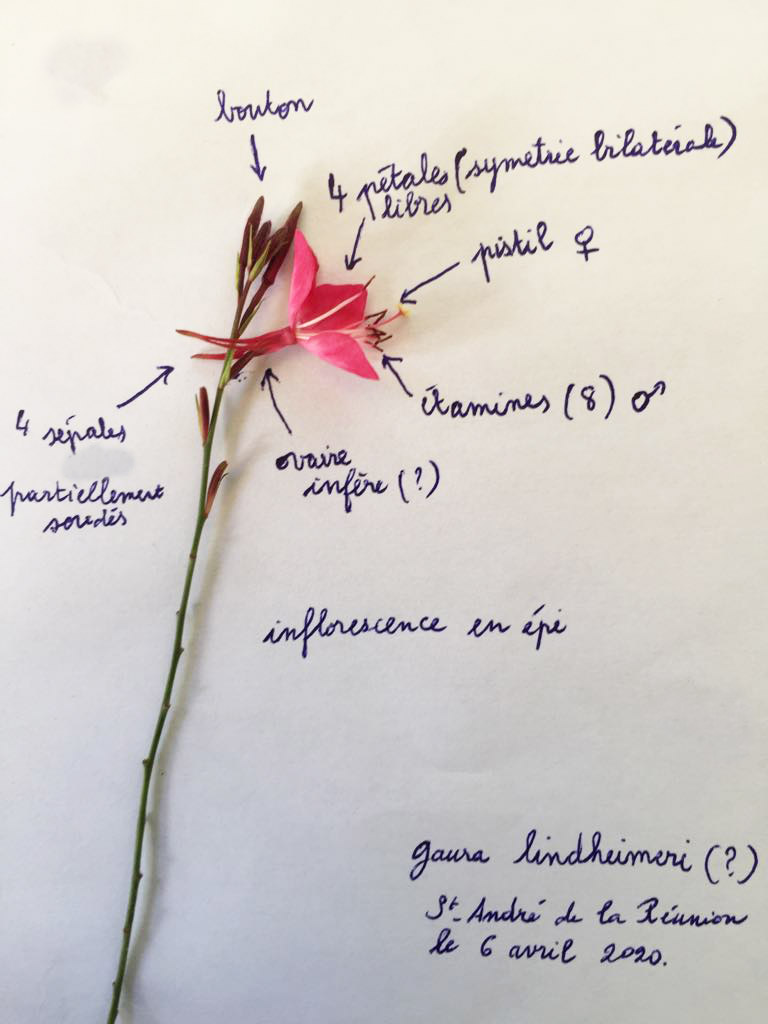 bouton
4 pétales (symétrie bilatérale)
libres
pistil ♀
étamines (8) ♂
4 sépales
partiellement
soudés
ovaire
infère (?)
inflorescence en épi
gaura lindheimeri (?)
St-André de la Réunion
le 6 avril 2020.